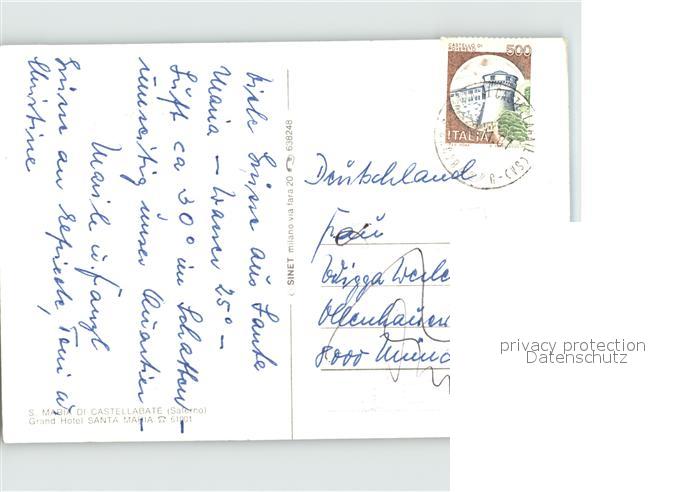 Viele Grüsse aus Santa
Maria – Wasser 25° –
Luft ca 30° im Schatten –
umseitig unser Quartier –
Maria u. Franzl
Grüsse an Toni u
Christine
S. MARIA DI CASTELLABATE (Salerno)
Grand Hotel SANTA MARIA ☎ 61001
SINET milano via fara 20 638248
CASTELLO DI
ROVERETO
500
ITALIA
Deutschland
Frau
Ollenhauer
8000 Münc
privacy protection
Datenschutz